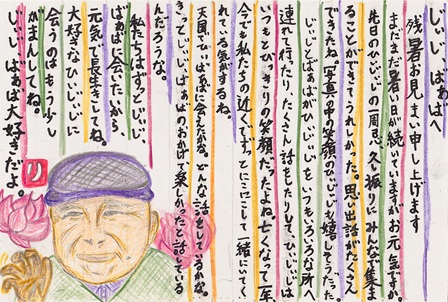 じぃじ、ばぁばへ
残暑お見まい申し上げます
まだまだ暑い日が続いていますがお元気ですか
先日のひぃじぃの一周忌、久し振りにみんなで集ま
ることができてうれしかった。思い出話がたくさん
できたね。写真の中の笑顔のひぃじぃも嬉しそうだった
じぃじとばぁばがひぃじぃをいつもいろいろな所へ
連れて行ったり、たくさん話をしたりして、ひぃじぃは
いつもとびきりの笑顔だったよね。亡くなって一年
今でも私たちの近くで、すぐとなりにニコニコして一緒にいてく
れている気がするね。
天国でひぃばぁばに会えたかな。どんな話をしているかな。
きっとじぃじ、ばぁばのおかげで楽しかったと話している
んだろうな。
私たちはずっとじぃじ
ばぁばに会いたいから、
元気で長生きしてね。
大好きなひぃじぃに
会うのはもう少し
がまんしてね。
じぃじ、ばぁば大好きだよ。
り